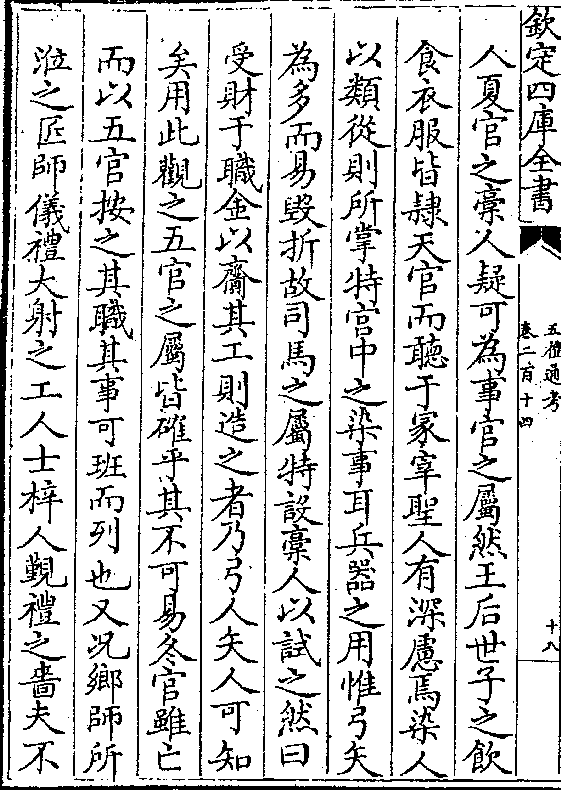 欽定四庫全書
五禮通考
卷二百十四
十八
人夏官之稾人疑可為事官之屬然王后世子之飲
食衣服皆隸天官而聽于冢宰聖人有深慮焉染人
以類從則所掌特宫中之染事耳兵器之用惟弓矢
為多而易毀折故司馬之屬特設稾人以試之然曰
受財于職金以齎其工則造之者乃弓人矢人可知
矣用此觀之五官之屬皆確乎其不可易冬官雖亡
而以五官按之其職其事可班而列也又况鄉師所
涖之匠師儀禮大射之工人士梓人覲禮之嗇夫不